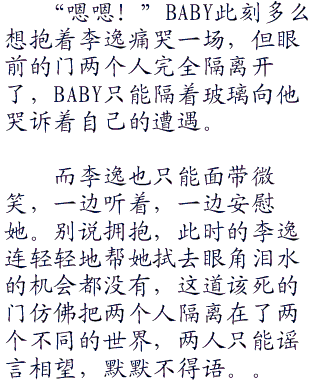 “嗯嗯！”BABY此刻多么
想抱着李逸痛哭一场，但眼
前的门两个人完全隔离开
了，BABY只能隔着玻璃向他
哭诉着自己的遭遇。
而李逸也只能面带微
笑，一边听着，一边安慰
她。别说拥抱，此时的李逸
连轻轻地帮她拭去眼角泪水
的机会都没有，这道该死的
门仿佛把两个人隔离在了两
个不同的世界，两人只能谣
言相望，默默不得语。。